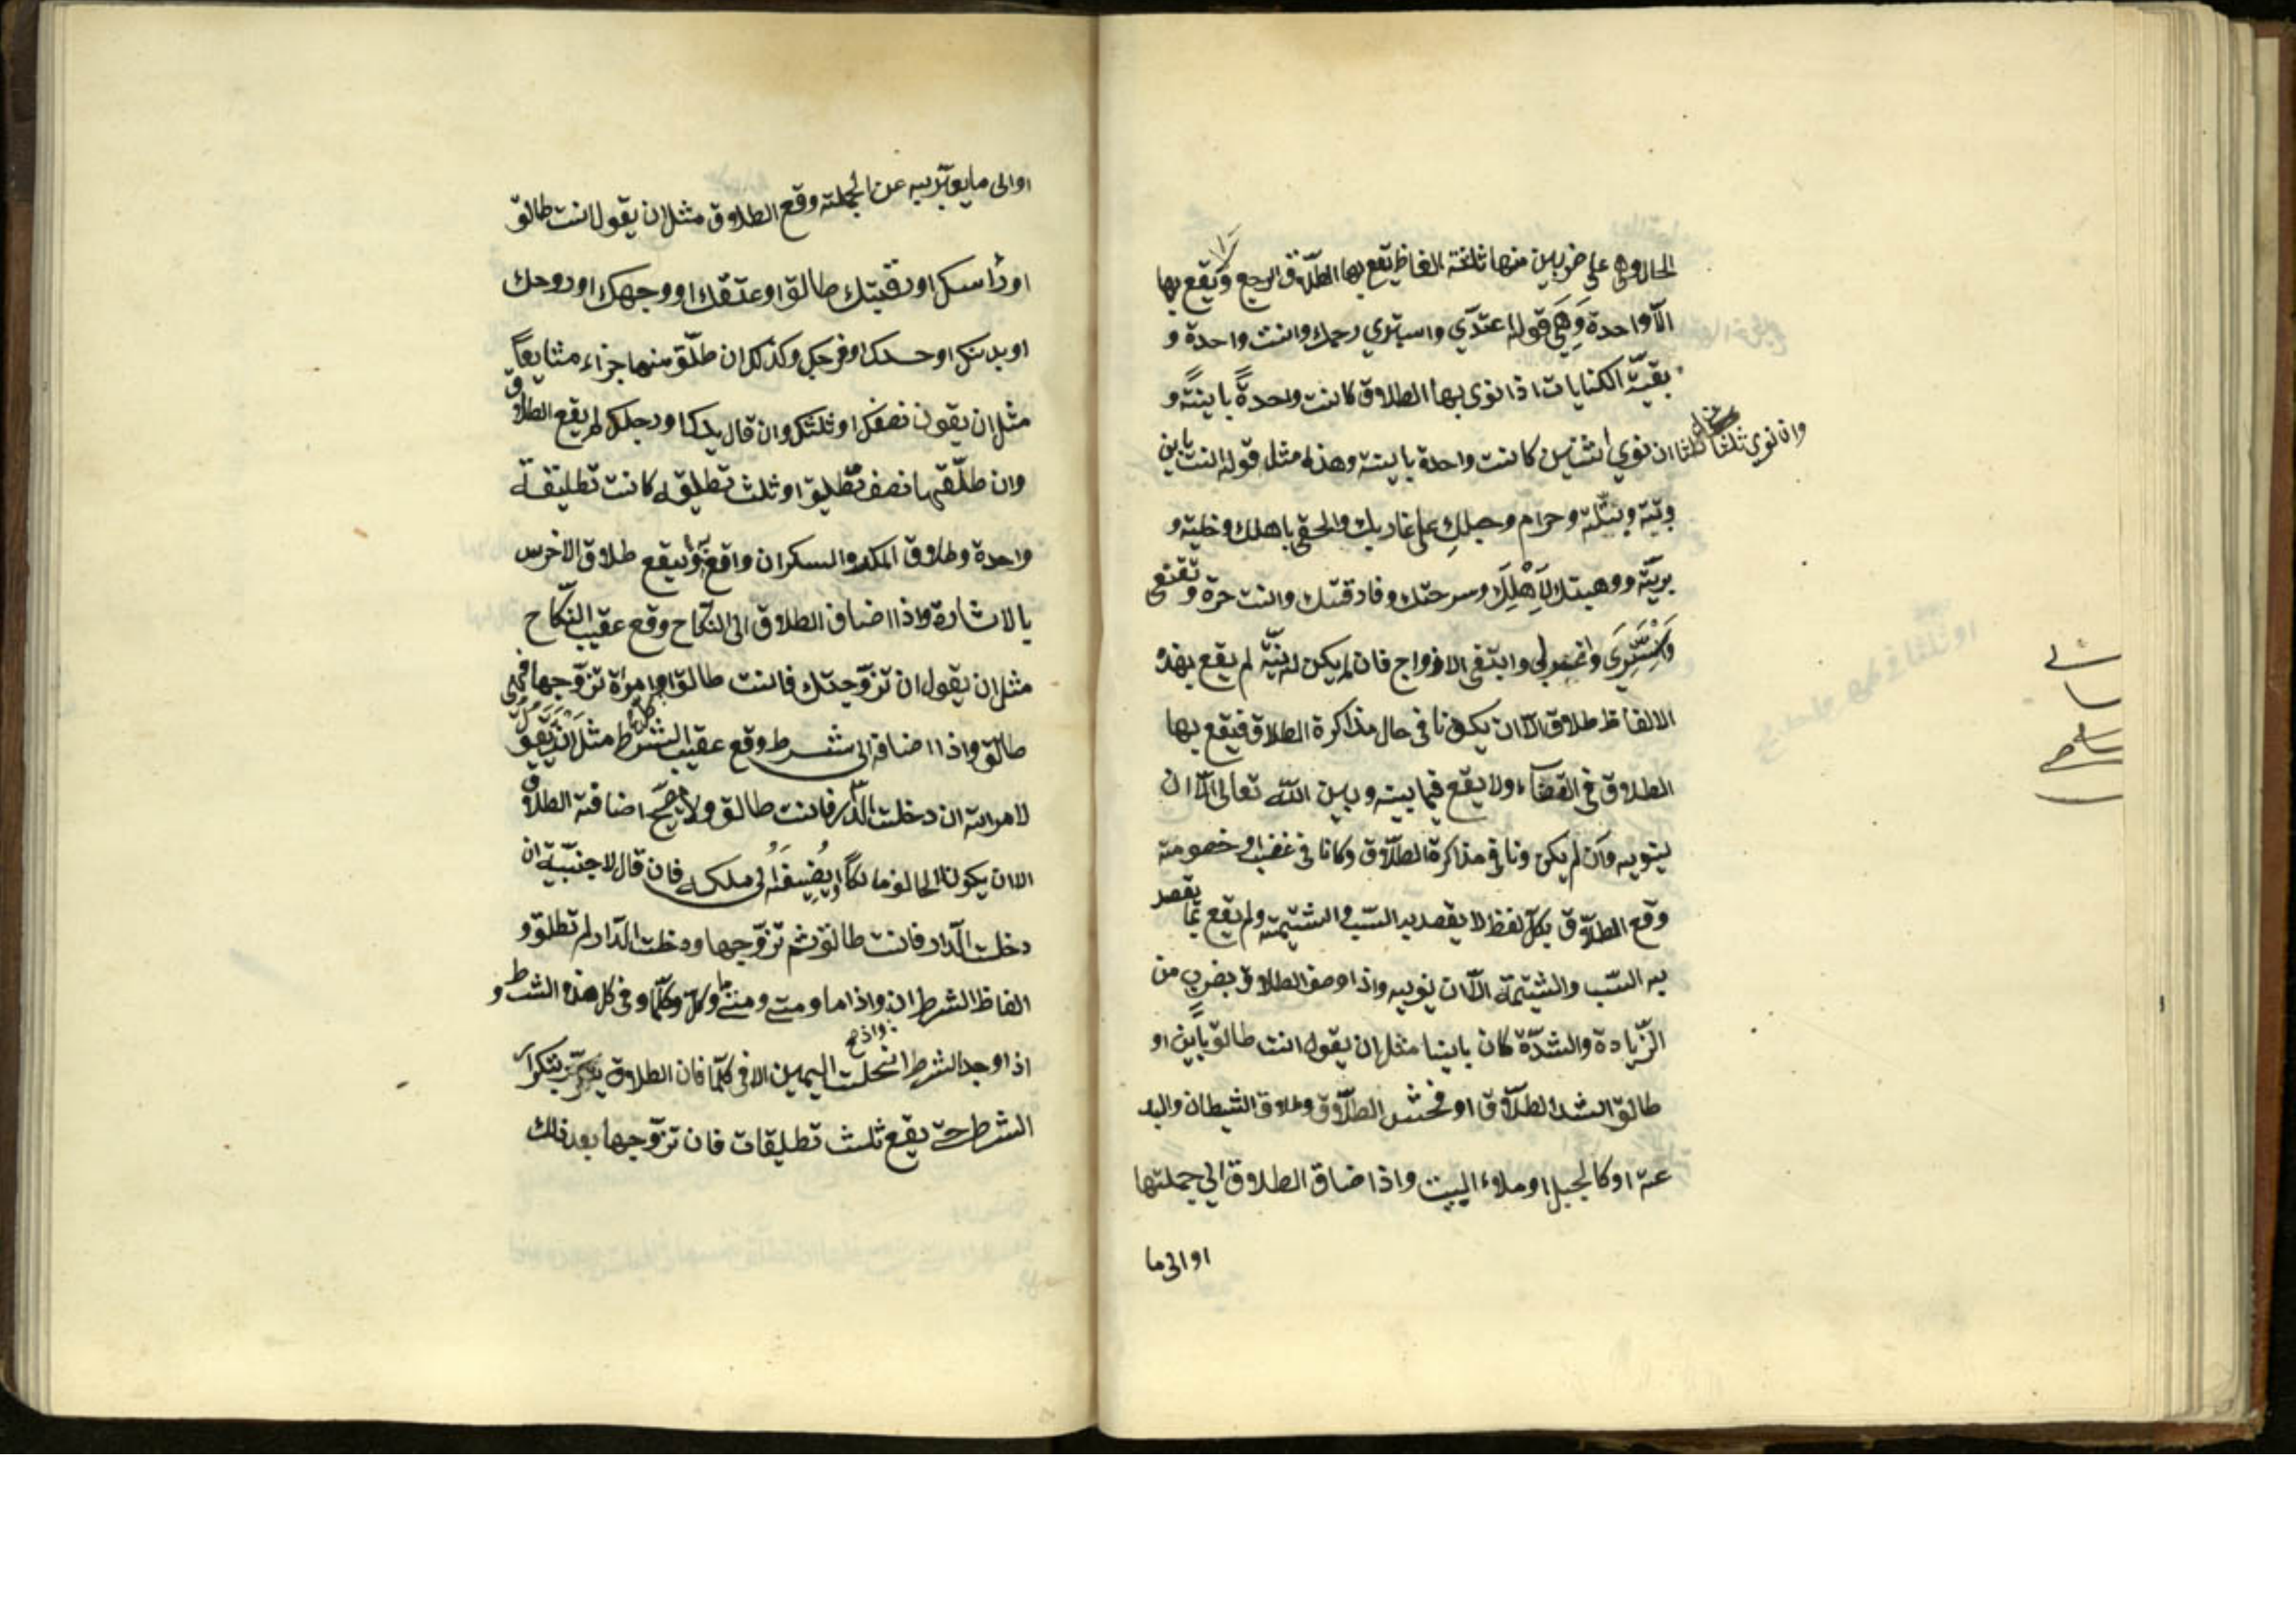 الحال وهي على ضربين منها ثلثة الفاظ يقع بها الطلاق الرجع ولا يقع بها
الّا واحدة وَهِيَ قوله اعتدّي واستبري رحمك وانت واحدة و
بقيّة الكنايات اذا نوى بها الطلاق كانت واحدةً باينةً و
وان نوى ثلثا كان ثلثا ان نوي اثنتين كانت واحدة باينة وهذه مثل قوله انت باين
وبتة وبتلة وحرام وحبلكِ على غاربك والحقي باهلك وخلية و
بريّة ووهبتك لِاَهْلِكِ وسرحتك وفارقتك وانت حرة و تقنعي
وَاسْتَتِرِي واغربي وابتغي الازواج فان لم يكن له نيّة لم يقع بهذه
الالفاظ طلاق الّا ان يكونا في حال مذاكرة الطلاق فيقع بها
الطلاق في القضاء ولا يقع فيما بينه وبين اللّه تعالى الّا ان
ينويه وان لم يكن ونا في مذاكرة الطلّاق وكانا في غضب او خصومة
وقع الطلّاق بكلّ لفظ لا يقصد به السّب والشتيمة ولم يقع بما يقصد
به السّب والشتيمة الّا ان ينويه واذا وصف الطلاق بضربٍ من
الزّيادة والشدّة كان باينا مثل ان يقول انت طالق باين او
طالق اشد الطلّاق او فحش الطلّاق وطلاق الشيطان والبد
عة او كالجبل او ملاء البيت واذا ضاق الطلاق الي جملتها
او الى ما
او الى ما يعبّر به عن الجملة وقع الطلاق مثل ان يقول انت طالق
او رأسك او رقبتك طالق او عنقك او وجهك او روحك
او بدنك او جسدك او فرجك وكذلك ان طلّق منها جزاء مشايعاً
مثل ان يقول نصفك او ثلثك وان قال يدك او رجلك لم يقع الطلاق
وان طلّقها نصف تطليق او ثلث تطليقه كانت تطليقة
واحدة وطلاق المكره والسكران واقع ويقع طلاق الاخرس
بالاشارة واذا اضاف الطلاق الى النكاح وقع عقيب النّكاح
مثل ان يقول ان تزوّجتك فانت طالق او كل امراة تزوّجها فهي
طالق واذا اضافة الى شرط وقع عقيب الشرط مثل ان يقول
لامراته ان دخلت الدّار فانت طالق ولا يصحّ اضافة الطلاق
الا ان يكون الحالف مالكاً او يُضِيفَهُ الى ملكه فان قال لاجنبيّة ان
دخلت الدّار فانت طالق ثم تزوّجها ودخلت الدّار لم تطلق و
الفاظ الشرط ان واذا ما ومتى ومتى ما وكل وكلّما وفي كل هذه الشرط و
اذا وجد الشرط انحلت اليمين الا في كلّما فان الطلاق يتكرّر بتكرار
الشرط حتى يقع ثلث تطليقات فان تزوّجها بعد ذلك